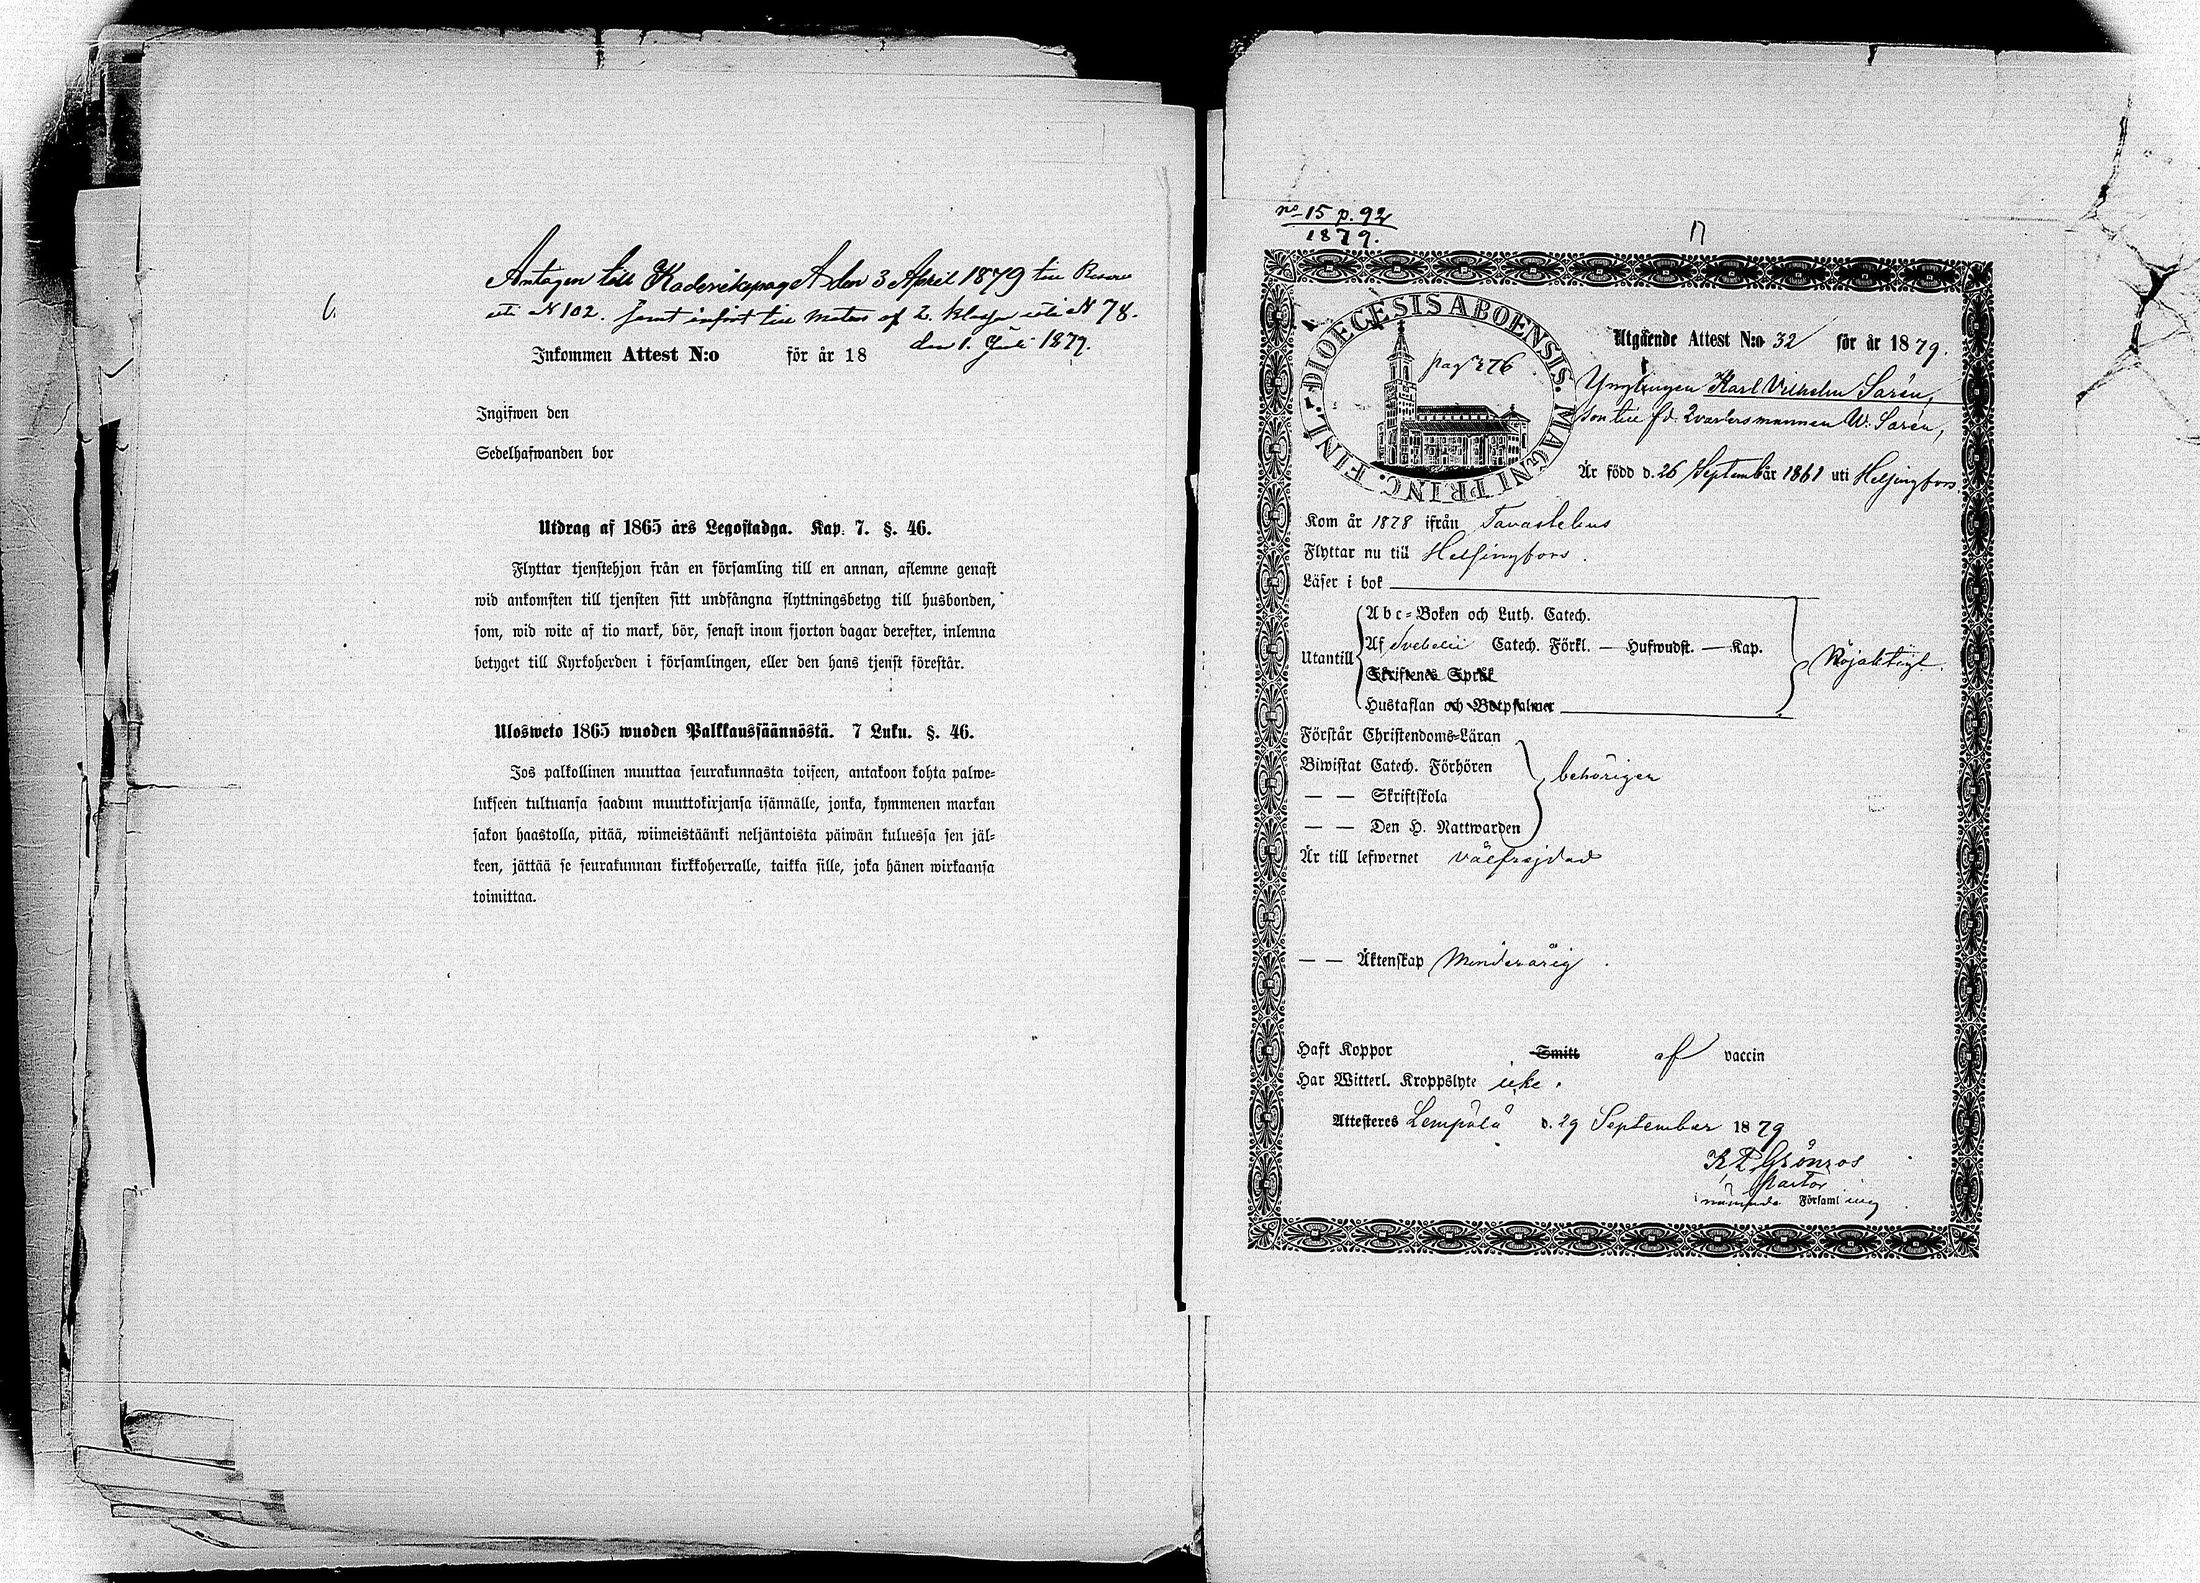 Antagen till den 3 April 1879 till
uti N 102. samt infört till af 2. klass uti N 78.
den 1. Juli 1879.
Inkommen Attest N:o för år 18
Ingifwen den
Sedelhafwanden bor
Utdrag af 1865 års Legostadga. Kap. 7. §. 46.
Flyttar tjenstehjon från en församling till en annan, aflemne genast
wid ankomsten till tjensten sitt undfångna flyttningsbetyg till husbonden,
som, wid wite af tio mark, bör, senast inom fjorton dagar derefter, inlemna
betyget till Kyrkoherden i församlingen, eller den hans tjenst förestår.
Ulosweto 1865 wuoden Palkkaussäännöstä. 7 Luku. §. 46.
Jos palkollinen muuttaa seurakunnasta toiseen, antakoon kohta palwe-
lukseen tultuansa saadun muuttokirjansa isännälle, jonka, kymmenen markan
sakon haastolla, pitää, wiimeistäänki neljäntoista päiwän kuluessa sen jäl-
keen, jättää se seurakunnan kirkkoherralle, taikka sille, joka hänen wirkaansa
toimittaa.
no 15 p. 92
1879.
DIOECESIS ABOENSIS. MAGNI PRINC. FINL.
pag 276
Utgående Attest N:o 32 för år 1879.
Ynglingen Karl Vilhelm Sarén,
son till f.d. Qvartersmannen W. Sarén,
Är född d. 26 Septembär 1861 uti Helsingfors.
Kom år 1878 ifrån Tavastehus
Flyttar nu till Helsingfors.
Läser i bok
Utantill
Abc-Boken och Luth. Catech.
Af Svebelii Catech. Förkl. — Hufwudst. — Kap.
Skriftenes Språk
Hustaflan och Botpsalmer
Nöjaktigt.
Förstår Christendoms-Läran
Biwistat Catech. Förhören
— — Skriftskola
— — Den H. Nattwarden
behörigen
Är till lefwernet välfrejdad
— — Äktenskap Minderårig.
Haft Koppor Smitt af vaccin
Har Witterl. Kroppslyte icke.
Attesteres Lempälä d. 29 September 1879
Grönroos
Pastor
i nämnde Församling